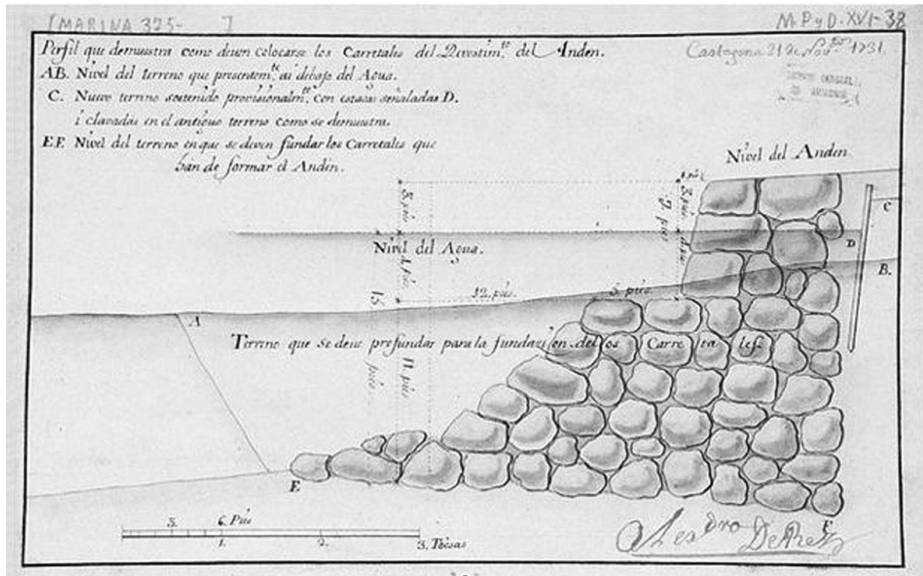 [MARINA 375- ]
M.P y D. XVI-38
Perfil que demuestra como deven colocarse los Carretales del Revestim.to del Anden.
Cartagena 21 de Nov.bre 1731.
AB. Nivel del terreno que presentem.te ai debajo del Agua.
C. Nuevo terreno sostenido provisionalm.te con estacas señaladas D.
i clavadas en el antiguo terreno como se demuestra.
EF. Nivel del terreno en que se deven fundar los Carretales que
hán de formar el Andin.
Nivel del Anden
3. piés
9. piés
C
D
Nivel del Agua.
B.
15. piés
12. piés.
5. piés.
A
Terreno que se deve profundar para la fundazion delos Carretales
11. piés
E
F
3. 6. Piés
1. 2. 3. Tóesas